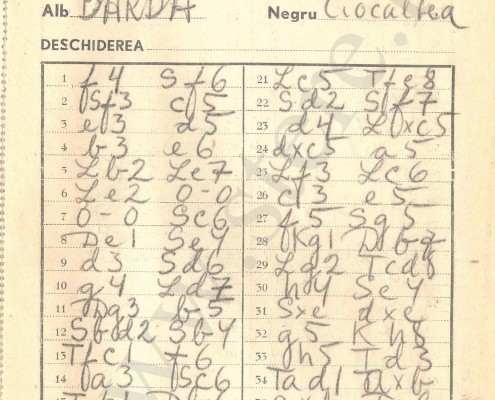 Alb BARDA Negru Ciocaltea
DESCHIDEREA
1 f4 Sf6
2 Sf3 c5
3 e3 d5
4 b3 e6
5 Lb2 Le7
6 Le2 0-0
7 0-0 Sc6
8 De1 Se4
9 d3 Sd6
10 g4 Ld7
11 Dg3 b5
12 Sbd2 Sb4
13 Tfc1 f6
14 a3 Sc6
21 Lc5 Tfe8
22 Sd2 Sf7
23 d4 Lxc5
24 dxc5 a5
25 Lf3 Lc6
26 c3 e5
27 f5 Sg5
28 Kg1 Db7
29 Lg2 Tcd8
30 h4 Se4
31 Sxe dxe
32 g5 Kh8
33 gh5 Td3
34 Tad1 Txb